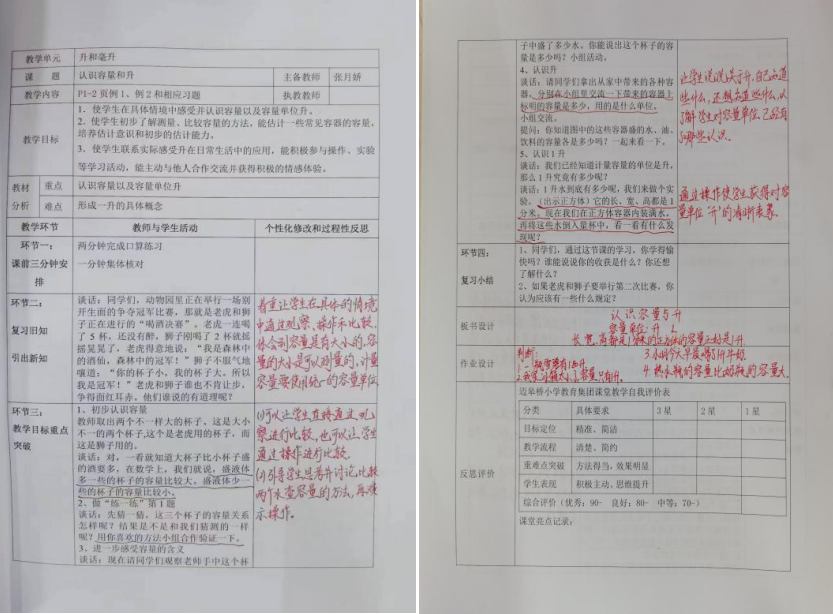 教学单元 升和毫升
课 题 认识容量和升 主备教师 张月娇
教学内容 P1-2页例1、例2和相应习题 执教教师
教学目标
1、使学生在具体情境中感受并认识容量以及容量单位升。
2、使学生初步了解测量、比较容量的方法，能估计一些常见容器的容量，
培养估计意识和初步的估计能力。
3、使学生联系实际感受升在日常生活中的应用，能积极参与操作、实验
等学习活动，能主动与他人合作交流并获得积极的情感体验。
教材 重点 认识容量以及容量单位升
分析 难点 形成一升的具体概念
教学环节 教师与学生活动 个性化修改和过程性反思
环节一：
课前三分钟安
排
两分钟完成口算练习
一分钟集体核对
环节二：
复习旧知
引出新知
谈话：同学们，动物园里正在举行一场别
开生面的争夺冠军比赛，那就是老虎和狮
子正在进行的“喝酒决赛”。老虎一连喝
了5杯，还没有醉，狮子刚喝了2杯就摇
摇晃晃了，老虎得意地说：“我是森林中
的酒仙，森林中的冠军！”狮子不服气地
嚷道：“你的杯子小，我的杯子大，所以
我是冠军！”老虎和狮子谁也不肯让步，
争得面红耳赤。他们谁说的有道理呢？
着重让学生在具体的情境
中通过观察、操作和比较，
体会到容量是有大小的，容
量的大小是可以测量的，计量
容量要使用统一的容量单位
环节三：
教学目标重点
突破
1、初步认识容量
教师取出两个不一样大的杯子。这是大小
不一的两个杯子,这个是老虎用的杯子，而
这是狮子用的。
谈话：对，一看就知道大杯子比小杯子盛
的酒要多，在数学上，我们就说，盛液体
多一些的杯子的容量比较大，盛液体少一
些的杯子的容量比较小。
2、做“练一练”第1题
谈话：先猜一猜，这三个杯子的容量关系
怎样呢？结果是不是和我们猜测的一样
呢？用你喜欢的方法小组合作验证一下。
3、进一步感受容量的含义
谈话：现在请同学们观察老师手中这个杯
(1)可以让学生直接通过观
察进行比较，也可以让学生
通过操作进行比较.
(2)引导学生思考并讨论比较
两个水壶容量的方法，再演
示操作。
子中盛了多少水。你能说出这个杯子的容
量是多少吗？小组活动。
4、认识升
谈话：请同学们拿出从家中带来的各种容
器，分别在小组里交流一下带来的容器上
标明的容量是多少，用的是什么单位。
小组交流。
提问：你知道图中的这些容器盛的水、油、
饮料的容量各是多少吗？一起来看一下。
5、认识1升
谈话：我们已经知道计量容量的单位是升，
那么1升究竟有多少呢？
谈话：1升水到底有多少呢，我们来做个实
验。（出示正方体）它的长、宽、高都是1
分米。现在我们在正方体容器内装满水，
再将这些水倒入量杯中，看一看有什么发
现呢？
让学生说说关于升，自己知道
些什么，还想知道些什么，以
了解学生对容量单位已经有
了哪些认识。
通过操作使学生获得对容
量单位“升”的清晰表象.
环节四：
复习小结
1、同学们，通过这节课的学习，你学得愉
快吗？谁能说说你的收获是什么？你还想
了解什么？
2、如果老虎和狮子要举行第二次比赛，你
认为应该有一些什么规定？
板书设计
认识容量与升
容量单位：升 L
长、宽、高都是1分米的正方体的容量正好是1升.
作业设计
判断：
3.小明今天早晨喝5升牛奶.
4.热水瓶的容量比奶瓶的容量大.
反思评价
近阜桥小学教育集团课堂教学自我评价表
分类 具体要求 3星 2星 1星
目标定位 精准、简洁
教学流程 清楚、简约
重难点突破 方法得当，效果明显
学生表现 积极主动、思维提升
综合评价（优秀：90- 良好：80- 中等：70-）
课堂亮点记录：